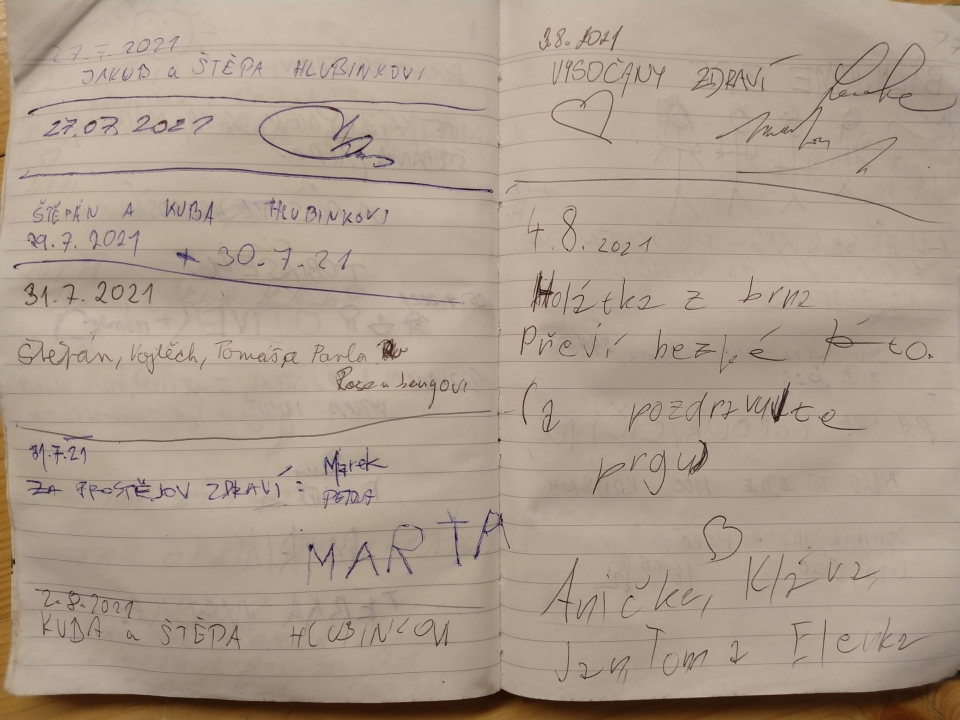 27.7.2021
JAKUB a ŠTĚPA HLUBINKOVI
27.07.2021
ŠTĚPÁN A KUBA HLUBINKOVI
29.7.2021 + 30.7.21
31.7.2021
Štěpán, Vojtěch, Tomáš a Pavla
Rosenbergovi
31.7.21
ZA PROSTĚJOV ZDRAVÍ: Marek
PETRA
MARTA
2.8.2021
KUBA a ŠTĚPA HLUBINKOVI
3.8.2021
VYSOČANY ZDRAVÍ Lenka
4.8.2021
Holátka z brna
Převí bezké to.
(a pozdravujte
prgu)
Anička, Klára,
Jan, Tom a Elenka